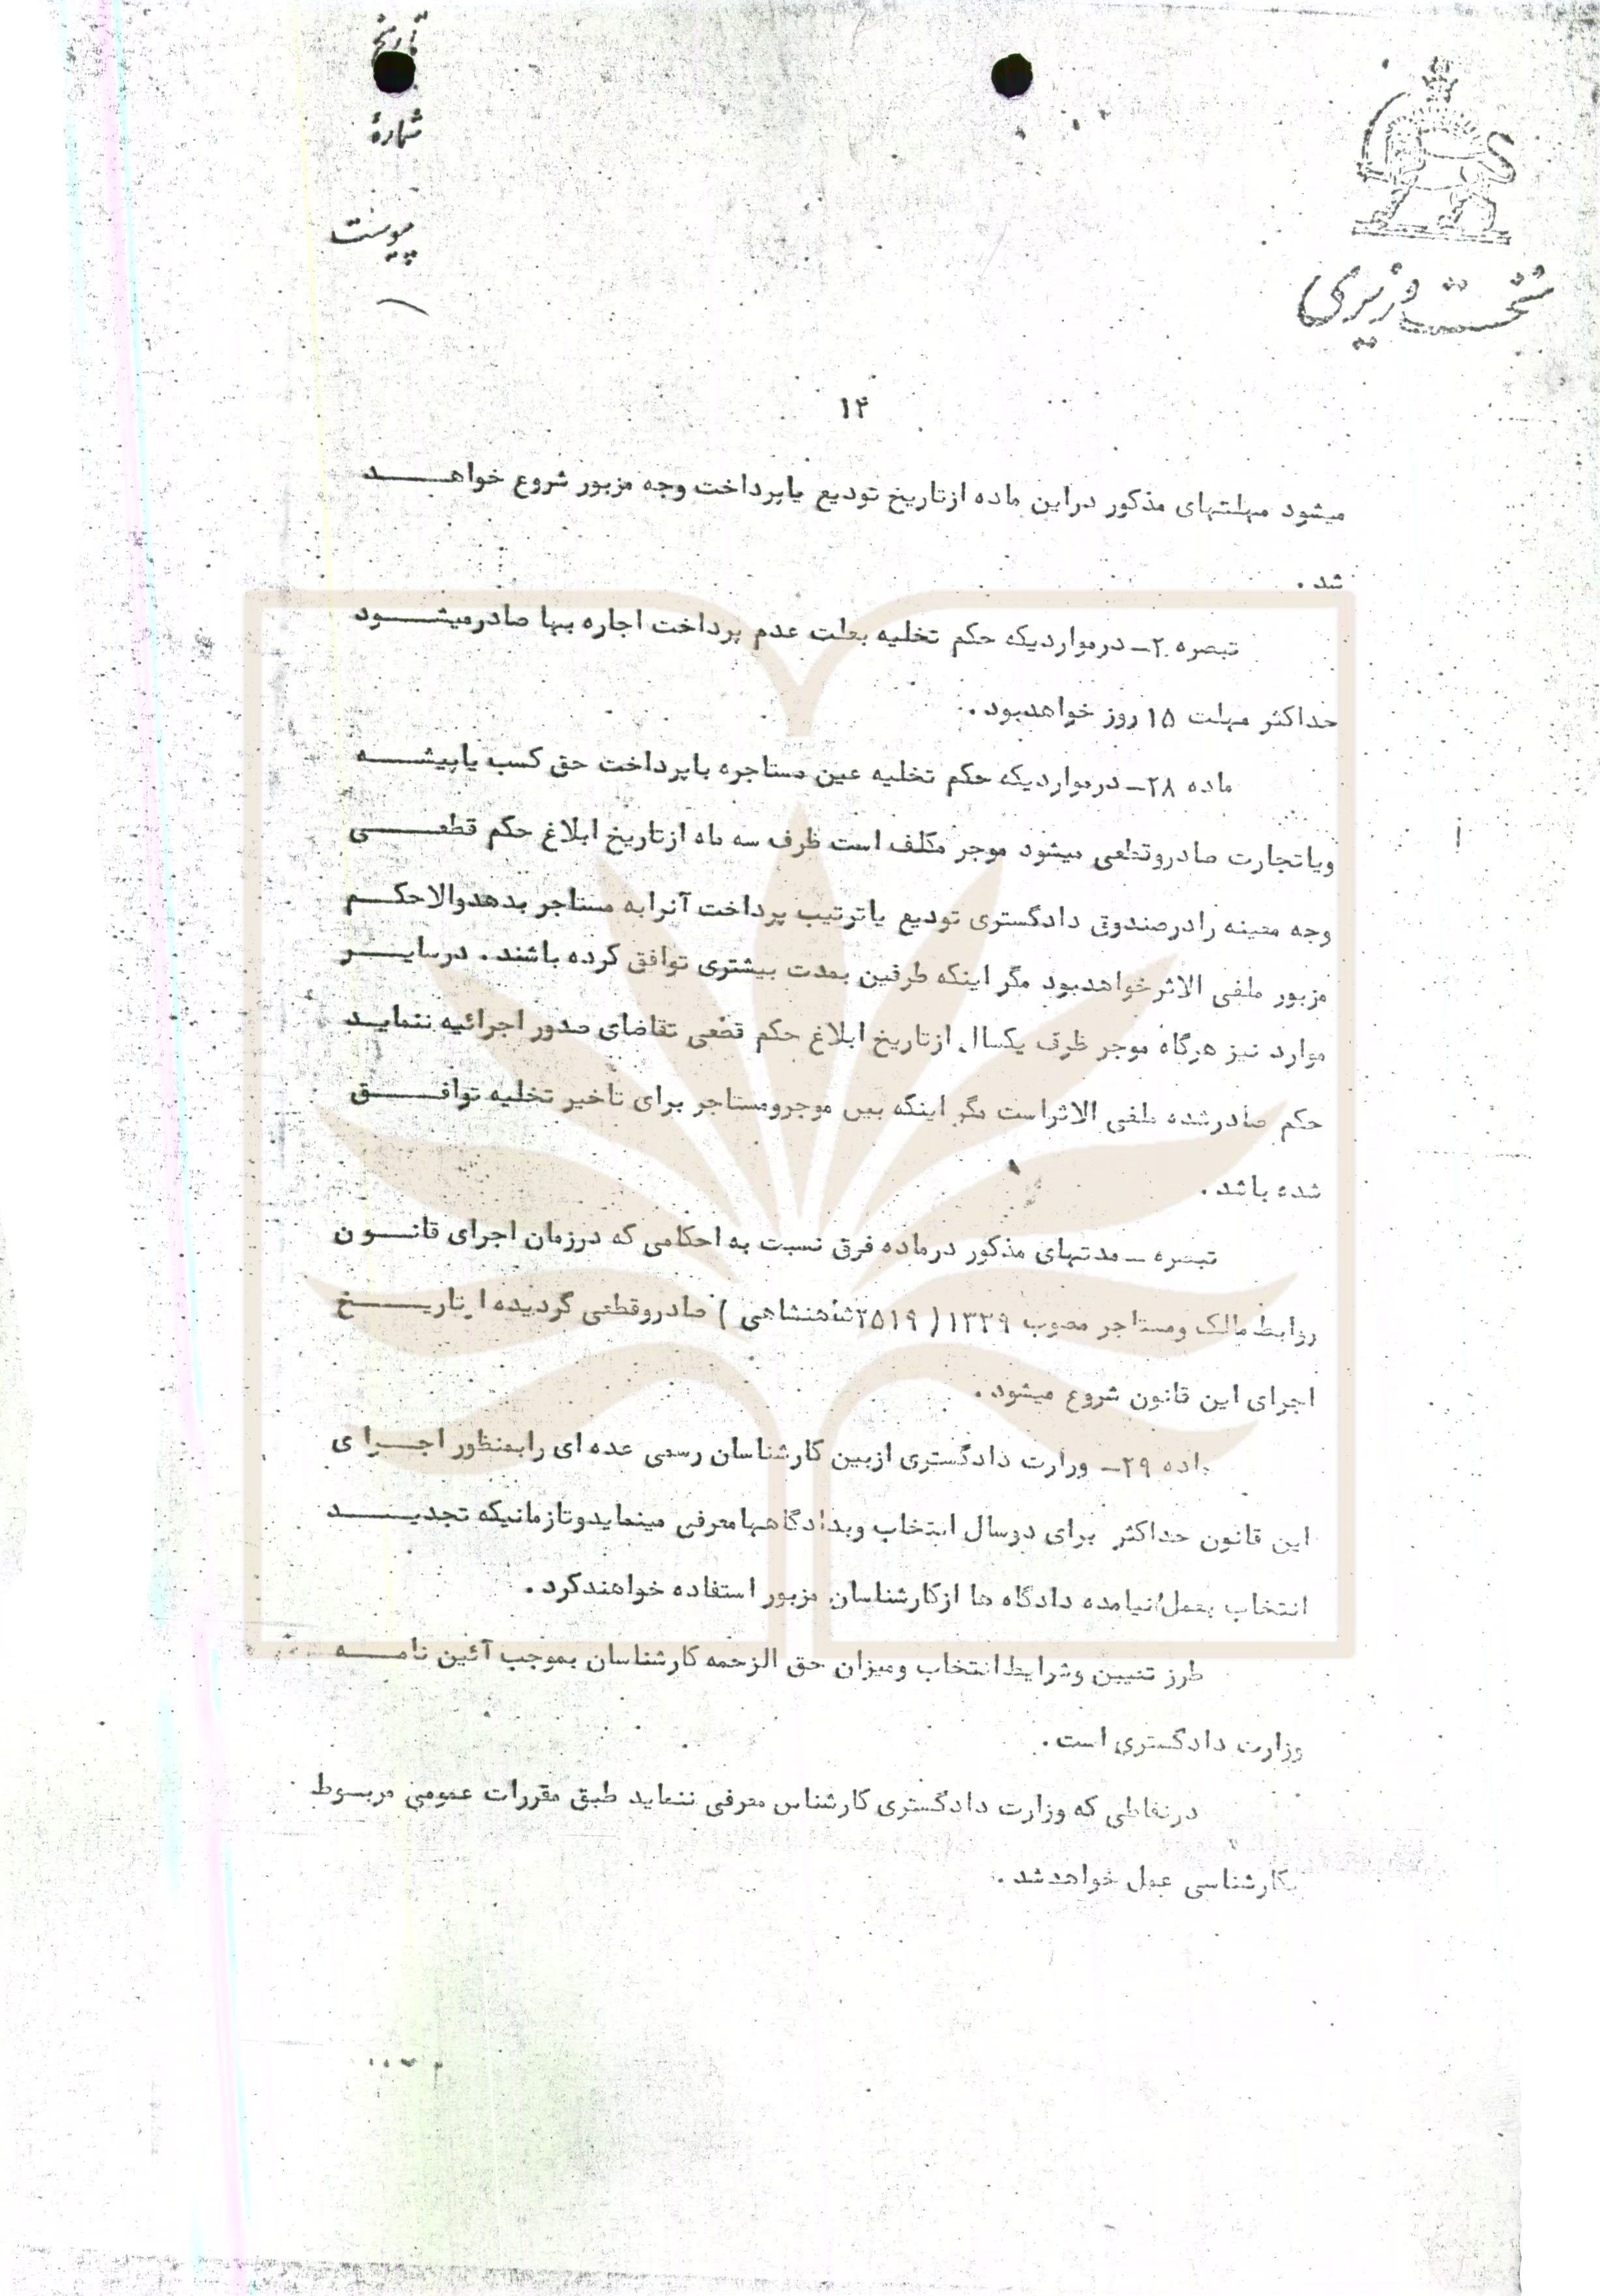 تاریخ
شمارهٔ
پیوست
نخست وزیری
۱۴
میشود مهلتهای مذکور دراین ماده ازتاریخ تودیع یاپرداخت وجه مزبور شروع خواهد
شد .
تبصره ۲ـ درمواردیکه حکم تخلیه بعلت عدم پرداخت اجاره بها صادرمیشود
حداکثر مهلت ۱۵ روز خواهدبود .
ماده ۲۸ـ درمواردیکه حکم تخلیه عین مستاجره باپرداخت حق کسب یاپیشه
ویاتجارت صادروقطعی میشود موجر مکلف است ظرف سه ماه ازتاریخ ابلاغ حکم قطعی
وجه معینه رادرصندوق دادگستری تودیع یاترتیب پرداخت آنرابه مستاجر بدهدوالاحکم
مزبور ملغی الاثرخواهدبود مگر اینکه طرفین بمدت بیشتری توافق کرده باشند . درسایر
موارد نیز هرگاه موجر ظرف یکسال ازتاریخ ابلاغ حکم قطعی تقاضای صدور اجرائیه ننماید
حکم صادرشده ملغی الاثراست مگر اینکه بین موجرومستاجر برای تاخیر تخلیه توافق
شده باشد .
تبصره ـ مدتهای مذکور درماده فوق نسبت به احکامی که درزمان اجرای قانون
روابط مالک ومستاجر مصوب ۱۳۳۹ ( ۲۵۱۹شاهنشاهی ) صادروقطعی گردیده ازتاریخ
اجرای این قانون شروع میشود .
ماده ۲۹ـ وزارت دادگستری ازبین کارشناسان رسمی عده ای رابمنظور اجرای
این قانون حداکثر برای دوسال انتخاب وبدادگاهها معرفی مینمایدوتازمانیکه تجدید
انتخاب بعمل نیامده دادگاه ها ازکارشناسان مزبور استفاده خواهندکرد .
طرز تعیین وشرایط انتخاب ومیزان حق الزحمه کارشناسان بموجب آئین نامه
وزارت دادگستری است .
درنقاطی که وزارت دادگستری کارشناس معرفی ننماید طبق مقررات عمومی مربوط
بکارشناسی عمل خواهدشد .